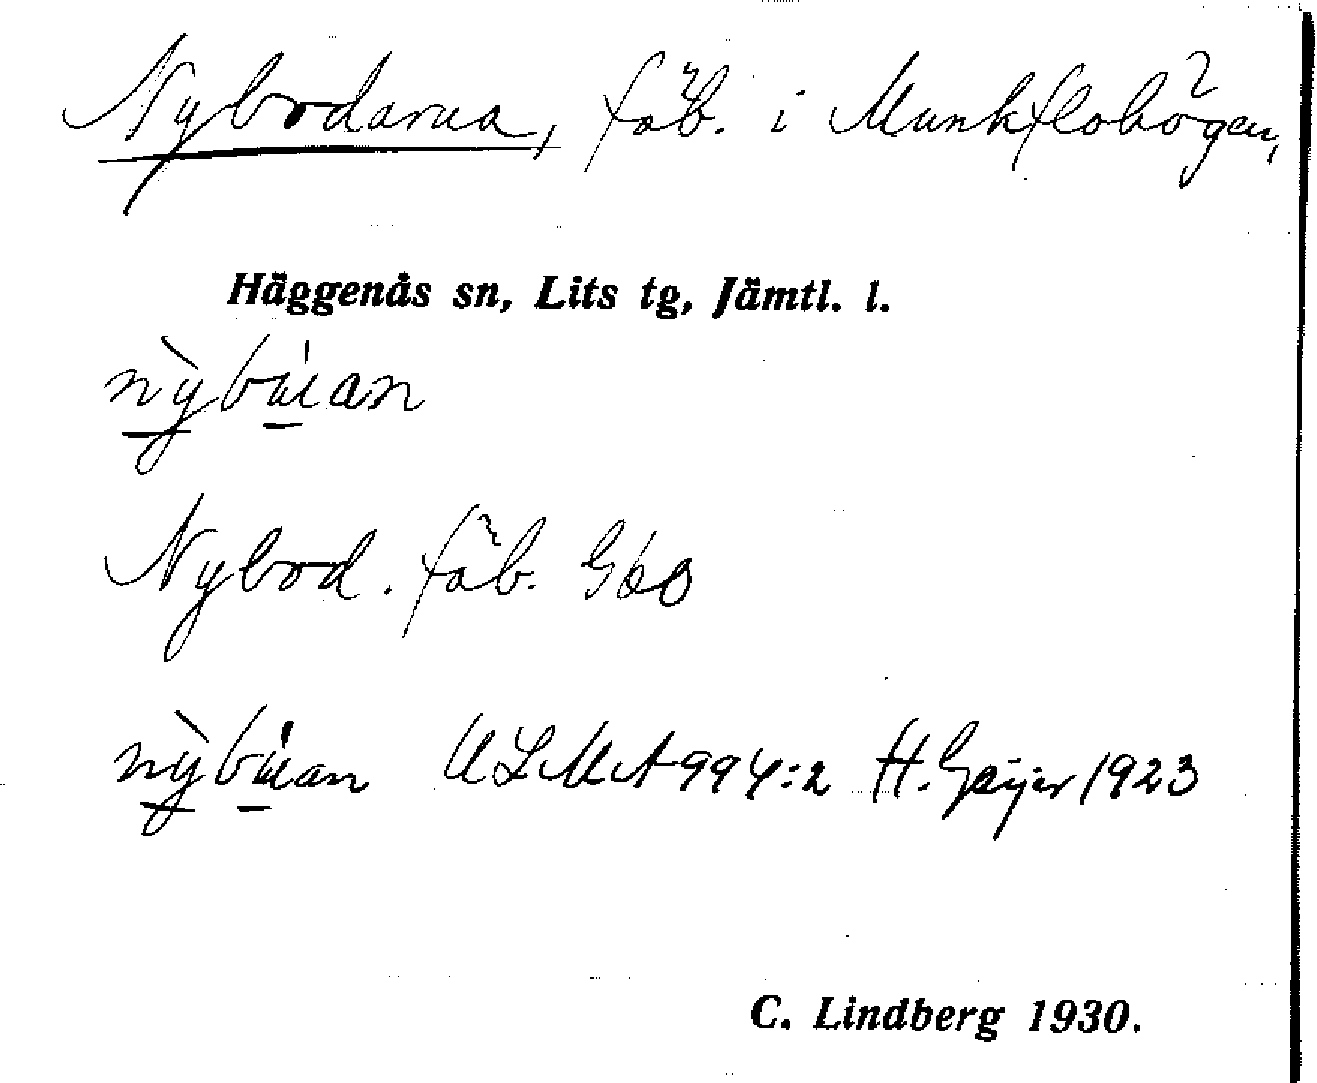 Nybodarna, fäb. i Munkflohögen,
Häggenås sn, Lits tg, Jämtl. l.
Nybod. fäb. GEO
ULMA 994:2 H. Geijer 1923
C. Lindberg 1930.